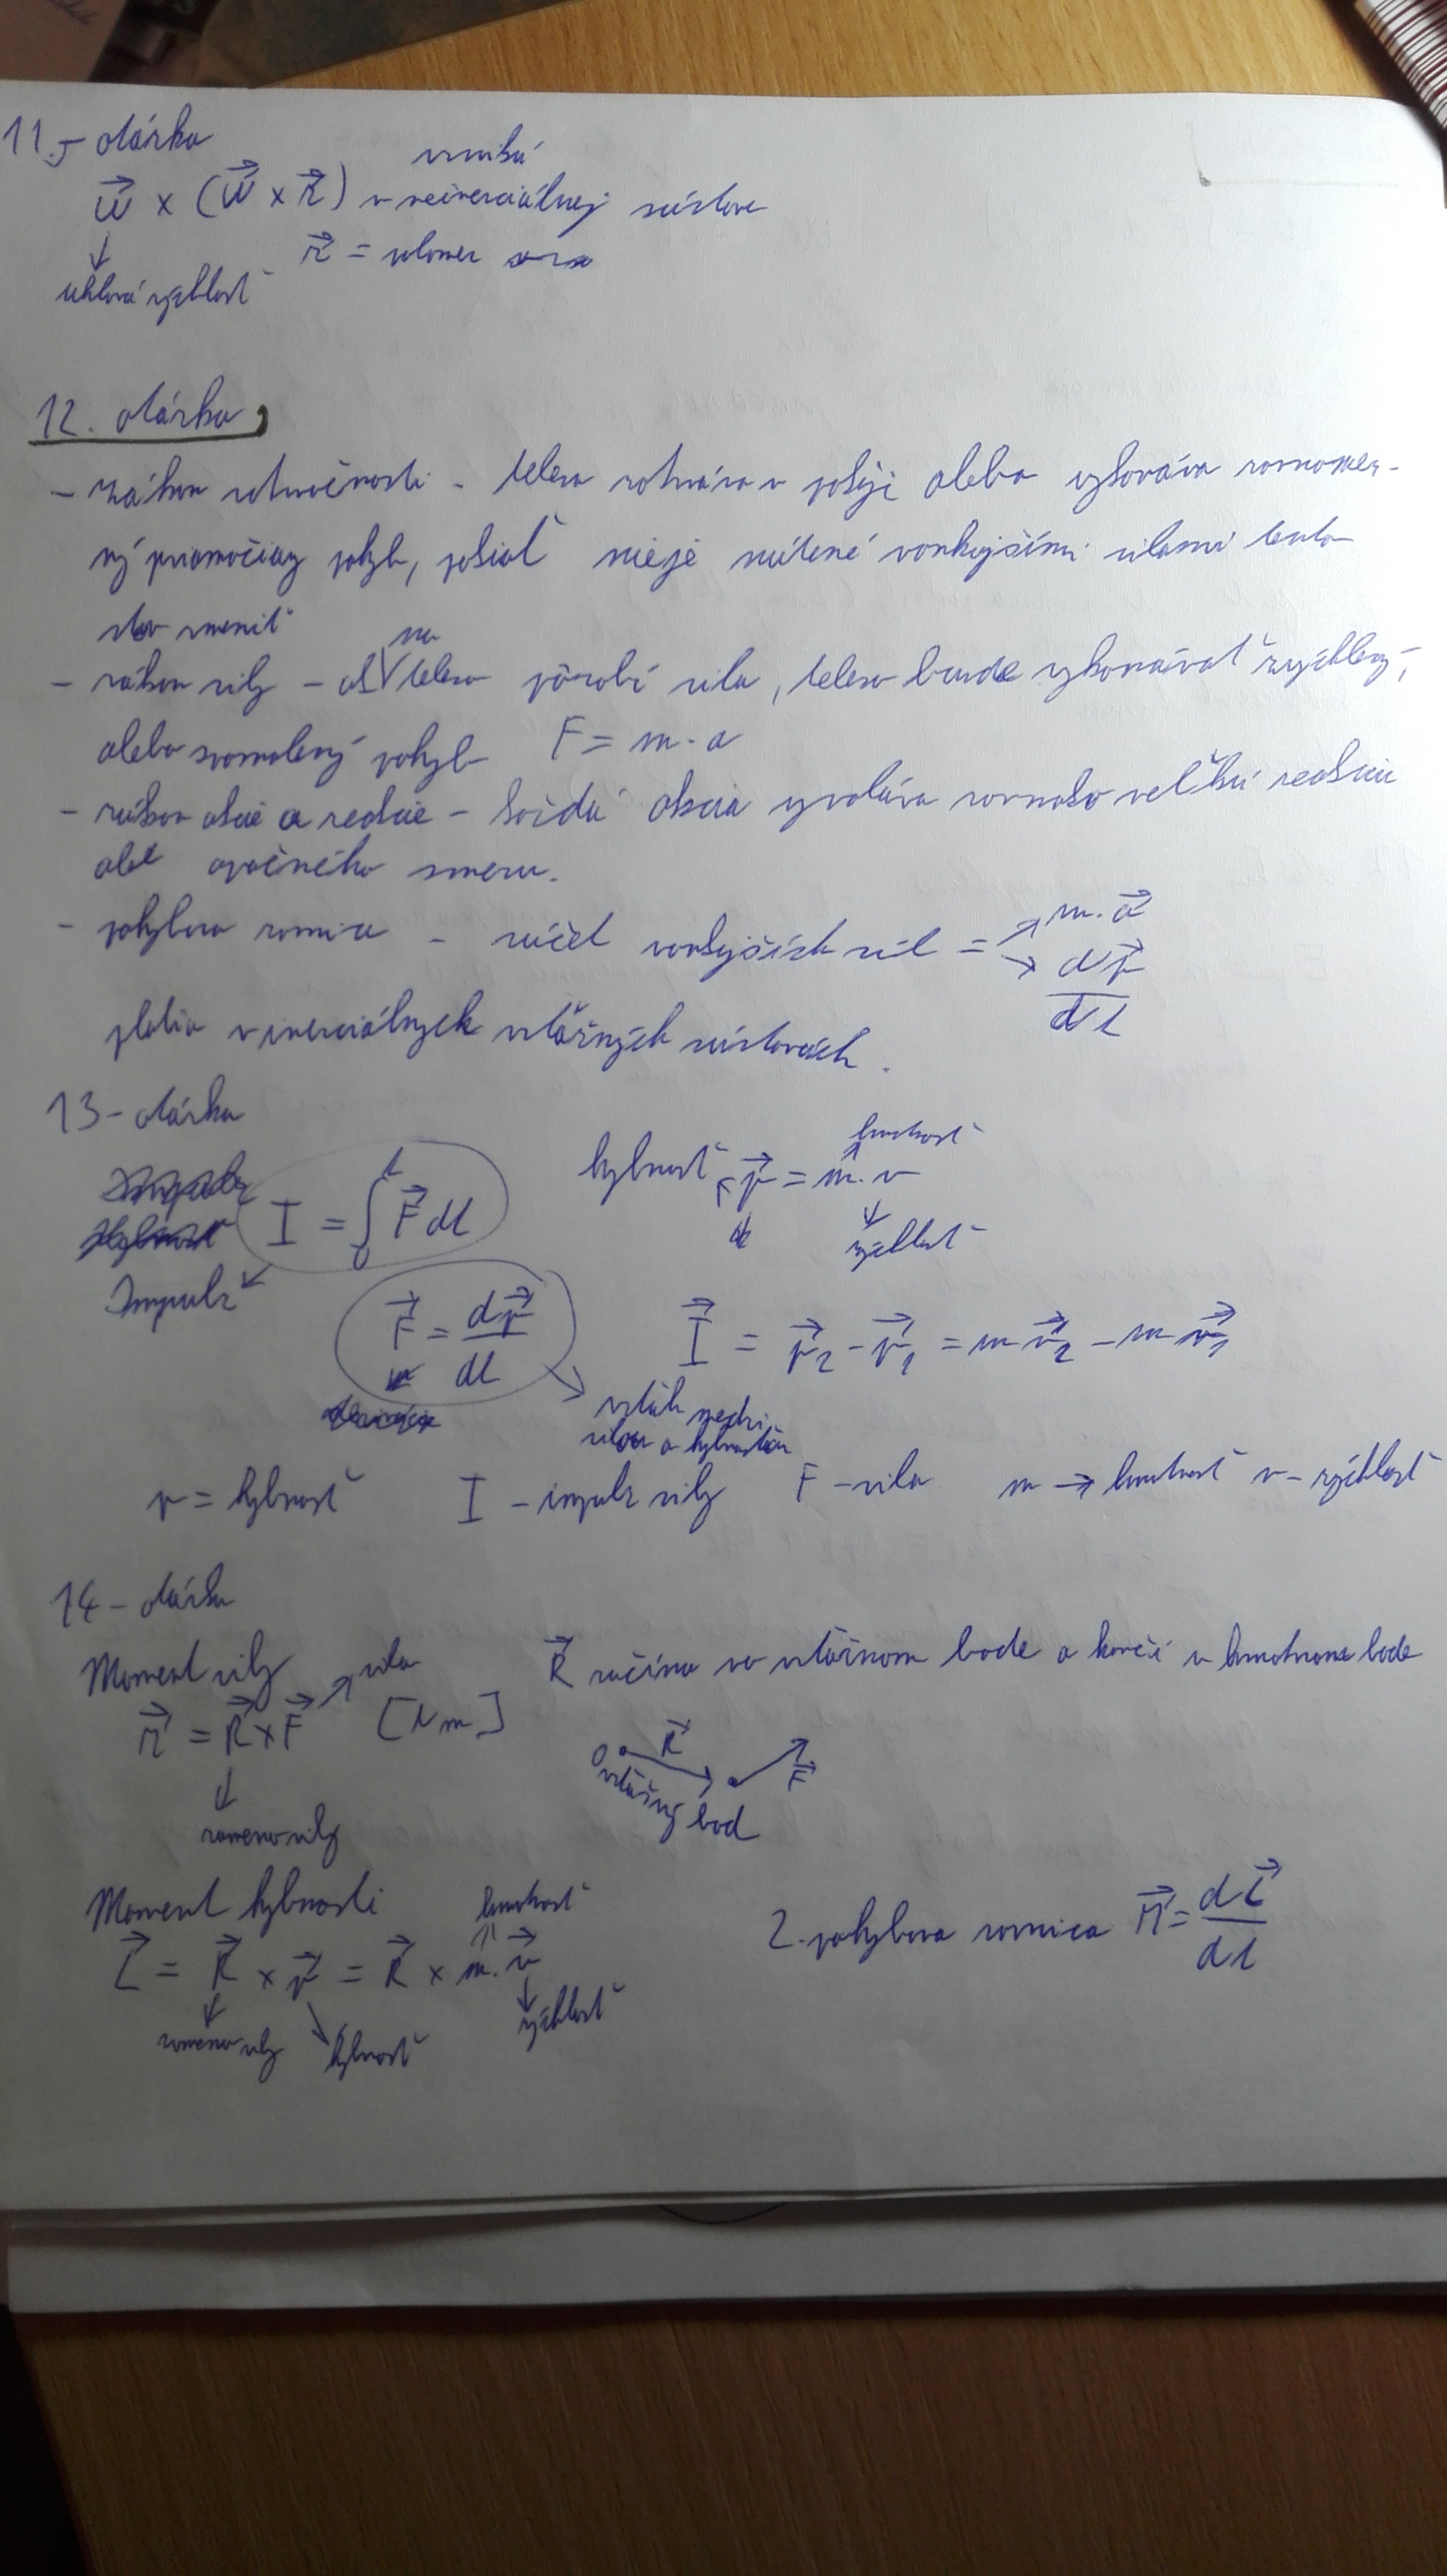 11. otázka
vzniká
ω⃗ × (ω⃗ × r⃗) v neinerciálnej sústave
r⃗ = polomer
uhlová rýchlosť
12. otázka
- zákon zotrvačnosti - teleso zotrváva v pokoji alebo vykonáva rovnomer-
ný priamočiary pohyb, pokiaľ nieje nútené vonkajšími silami tento
stav zmeniť
- zákon sily - ak na teleso pôsobí sila, teleso bude vykonávať zrýchlený,
alebo spomalený pohyb F = m · a
- zákon akcie a reakcie - každá akcia vyvoláva rovnako veľkú reakciu
ale opačného smeru.
- pohybova rovnica - súčet vonkajších síl = m · a⃗
dp⃗/dt
platia v inerciálnych vzťažných sústavách.
13 - otázka
I = ∫₀ᵗ F⃗ dt hybnosť p⃗ = m · v
hmotnosť
rýchlosť
Impulz
F⃗ = dp⃗/dt I⃗ = p⃗₂ - p⃗₁ = m v⃗₂ - m v⃗₁
vzťah medzi
silou a hybnosťou
p = hybnosť I - impulz sily F - sila m → hmotnosť v - rýchlosť
14 - otázka
Moment sily sila R⃗ začína vo vzťažnom bode a končí v hmotnom bode
M⃗ = R⃗ × F⃗ [Nm]
O R⃗ F⃗
vzťažný bod
rameno sily
Moment hybnosti hmotnosť
L⃗ = R⃗ × p⃗ = R⃗ × m · v⃗ 2. pohybova rovnica M⃗ = dL⃗/dt
rameno sily hybnosť rýchlosť